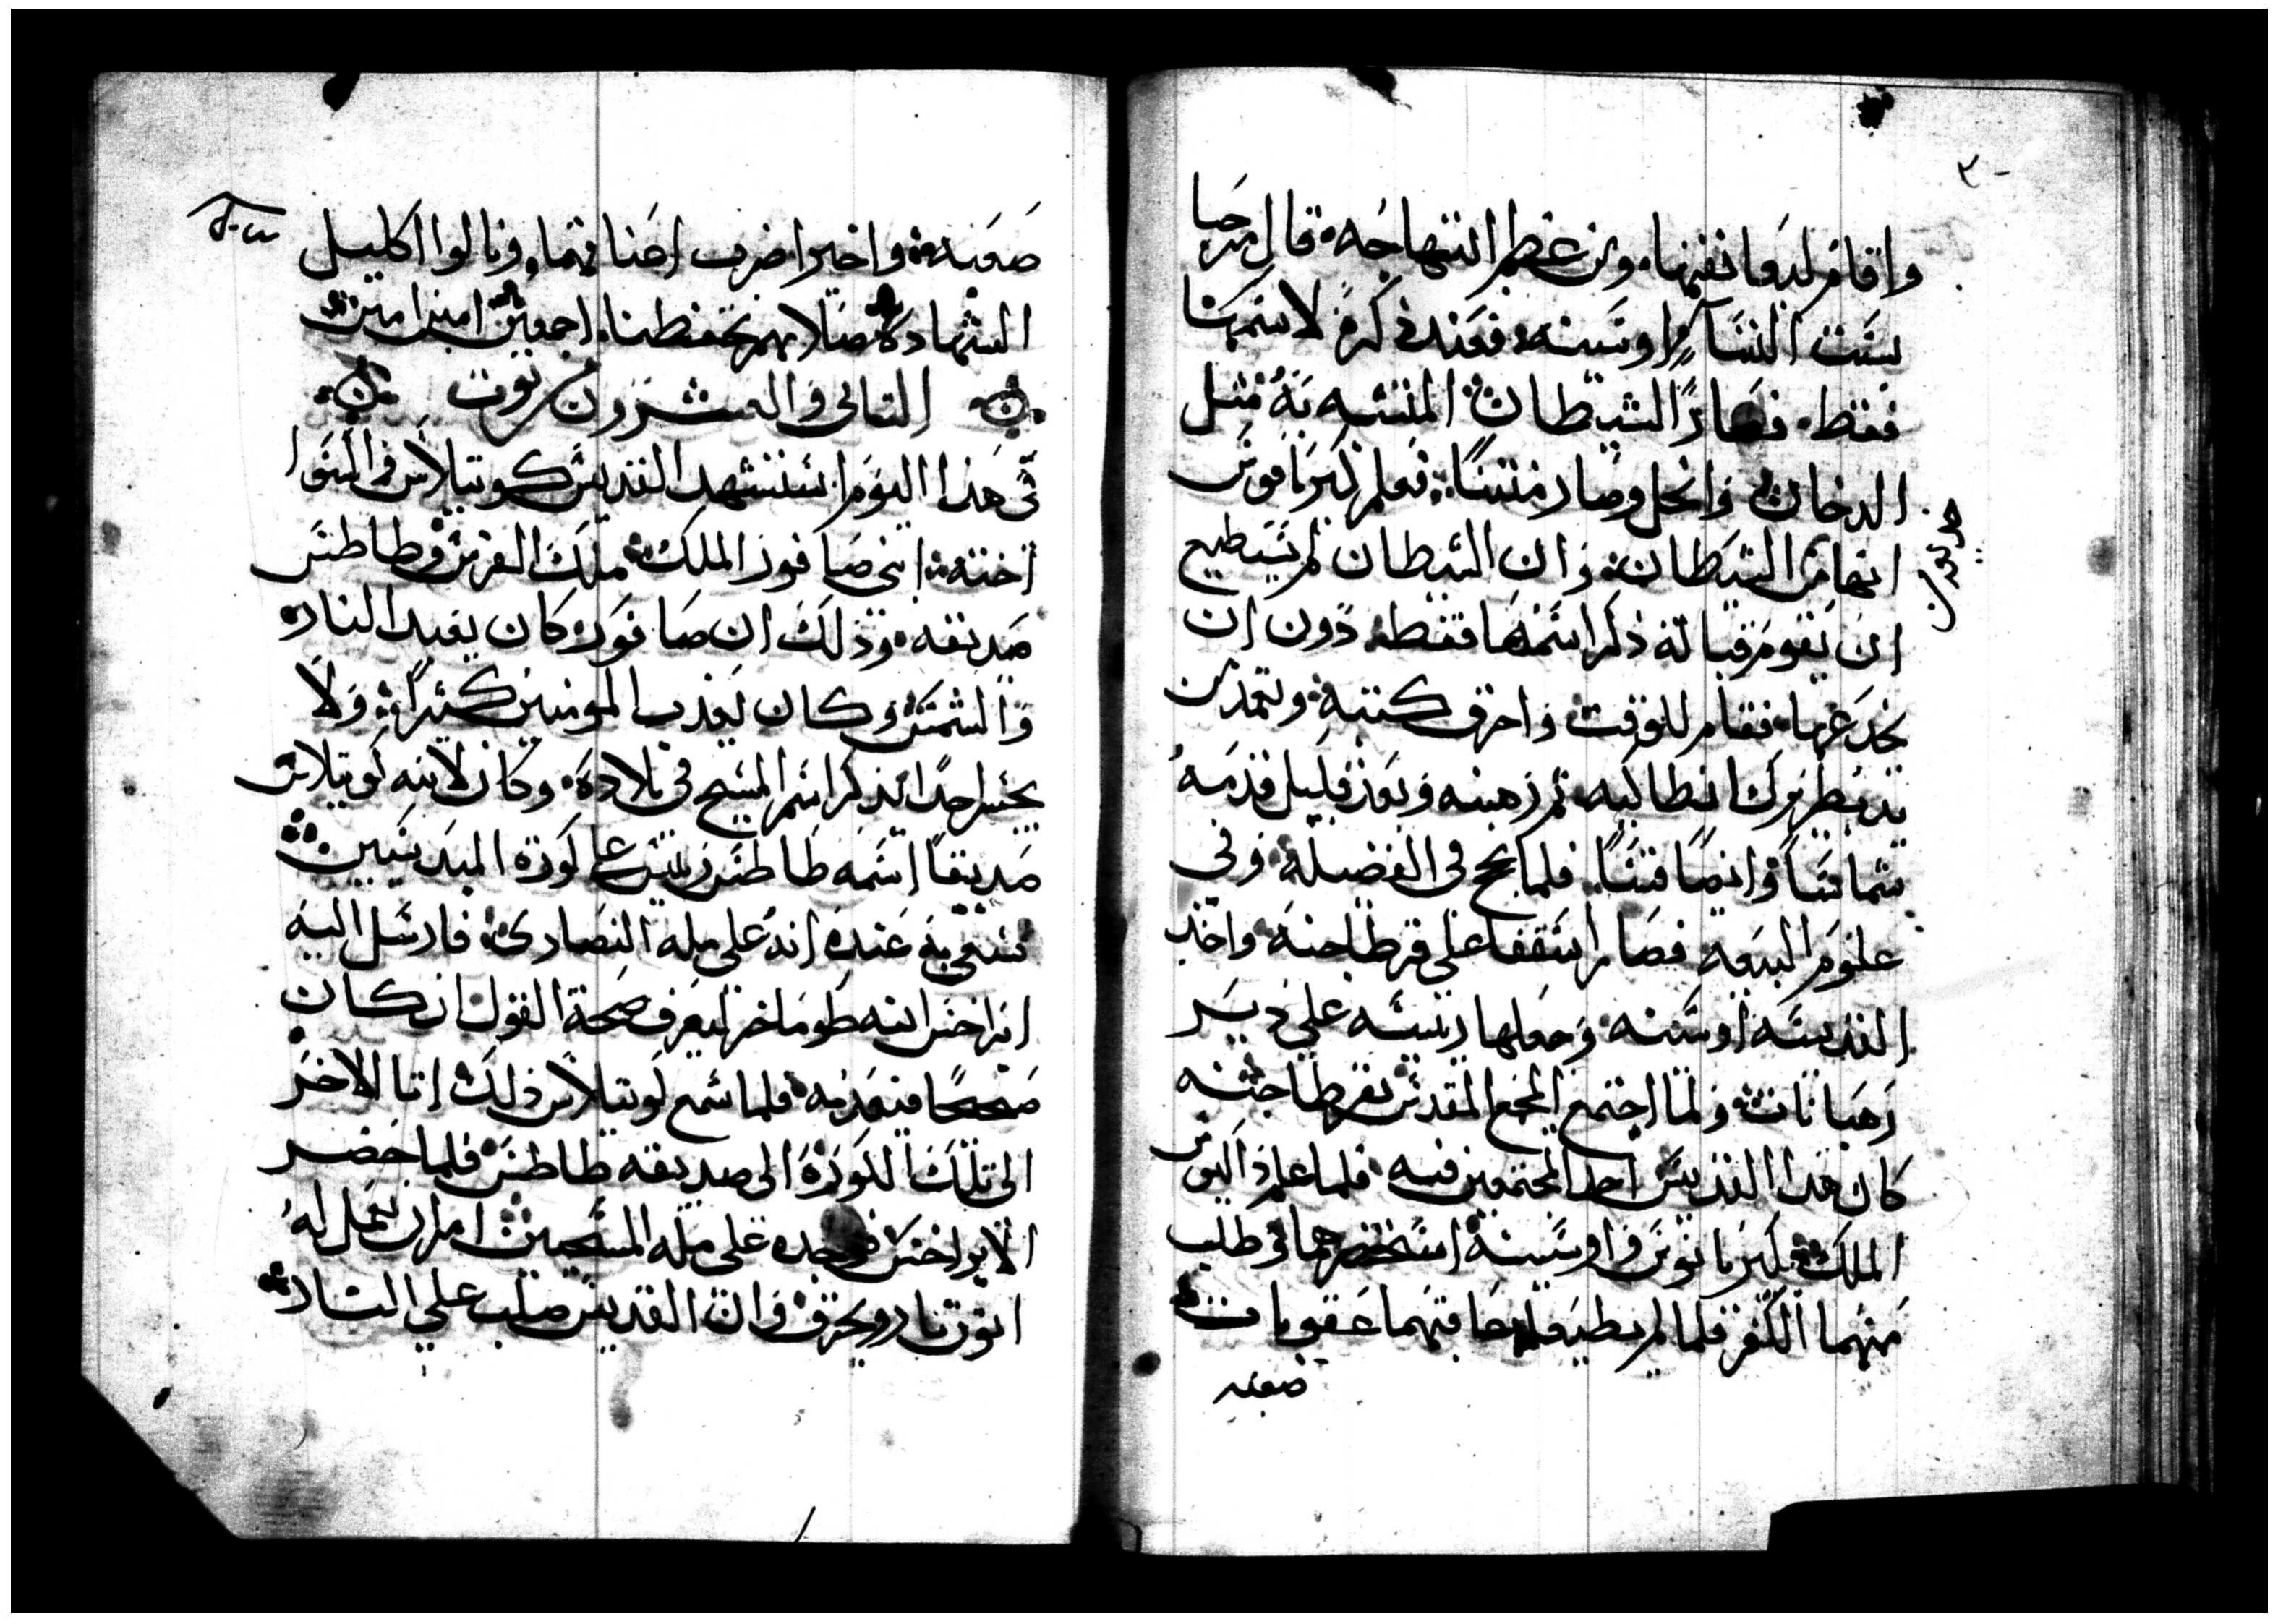 واقام لديها نفسها. ومن عظم ابتهاجه قال مرحبا
بست النسآ اوستينه فعند ذكره لاسمها
فقط. فصار الشيطان المتشبه به مثل
الدخان وانحل وصار منتنًا. فعلم كبريانوس
انها من الشيطان. وان الشيطان لم يستطيع
ان يقوم قبالة ذكر اسمها فقط دون ان
يخدعها. فقام للوقت واحرق كتبه وتعمد من
يد بطريرك انطاكيه ثم رهبنه وبعد قليل قدمه
شماسًا وايضًا قسًا. فلما نجح في الفضيلة وفي
علوم البيعه فصار اسقفا على قرطاجنة واخد
القديسه اوستينه وجعلها رييسه على دير
رهبانات ولما اجتمع المجمع المقدس بقرطاجنه
كان هدا القديس احد المجتمعين فيه فلما علم داكيوس
الملك بكبريانوس واوستينة استحضرهما وطلب
منهما الكفر فلما لم يطيعاه عاقبهما عقوبات
صعبه
صعبه واخيرا ضرب اعناقهما. ونالوا اكليل
الشهادة صلاتهم تحفظنا اجمعين امين امين
التاني والعشرون من توت
في هذا اليوم استشهد القديس كوتيلاس واكسوا
اخته ابني صافور الملك ملك الفرس وطاطس
صديقه. وذلك ان صافور كان يعبد النار
والشمس وكان يعذب المومنين كثيرًا ولا
يجسر احدًا يذكر اسم المسيح في بلاده وكان لابنه كوتيلاس
صديقًا اسمه طاطس رييس على كورة الميدنيين
فسعي به عنده انه على مله النصارى فارسل اليه
اميرا اخر اسمه طوماخر ليعرف صحة القول ان كان
صحيحا فيعذبه فلما سمع كوتيلاس ذلك اتا الاخر
الى تلك الكورة الى صديقه طاطس فلما حضر
الامير اخر فوجده على مله المسيحيين امر ان يعمل له
اتون نار ويحرق وان القديس صلب على النار